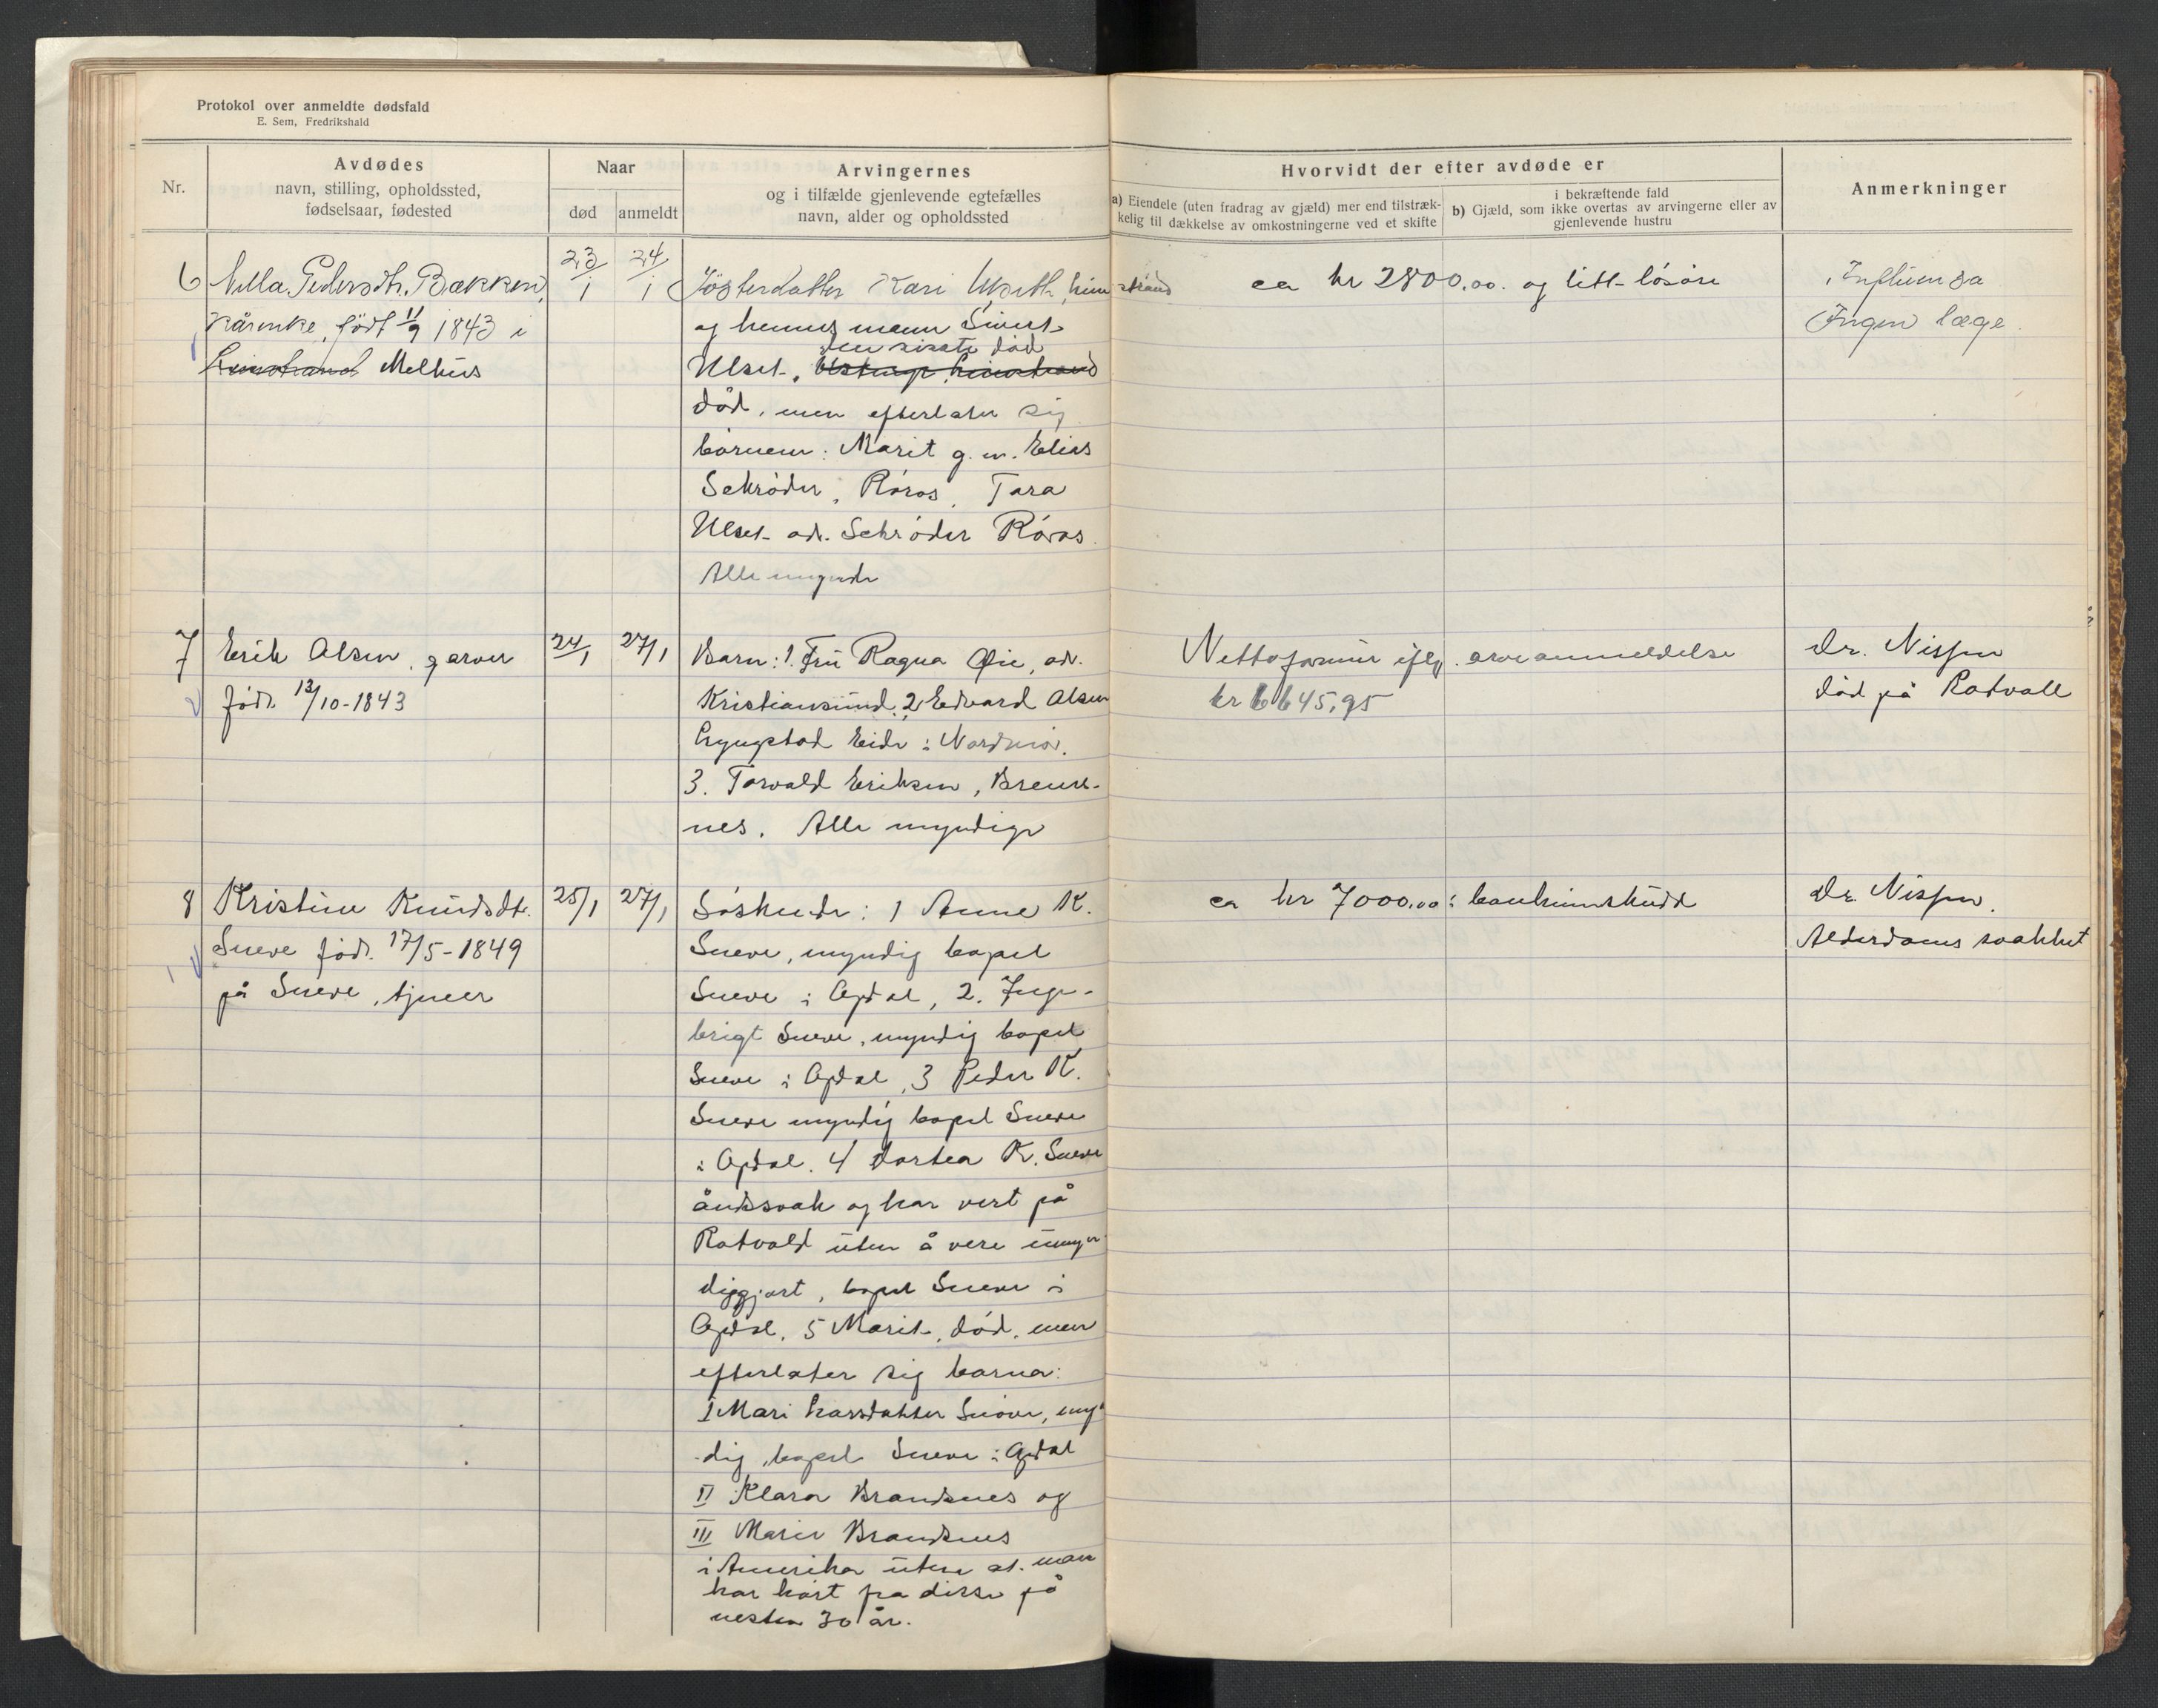 Protokol over anmeldte dødsfald
E. Sem, Fredrikshald
Nr.
Avdødes
navn, stilling, opholdssted,
fødselsaar, fødested
Naar
død
anmeldt
Arvingernes
og i tilfælde gjenlevende egtefælles
navn, alder og opholdssted
Hvorvidt der efter avdøde er
a) Eiendele (uten fradrag av gjæld) mer end tilstræk-
kelig til dækkelse av omkostningerne ved et skifte
i bekræftende fald
b) Gjæld, som ikke overtas av arvingerne eller av
gjenlevende hustru
Anmerkninger
6
Pedersdtr. Bækken,
kårenke, født 11/9 1843 i
Leinstrand Melhus
23/1
24/1
Søsterdatter Kari Leinstrand
og hennes mann Sivert
den siste død
Ulset, Leinstrand
død, men efterlater sig
børnene: Marit g. m. Elias
Schrøder, Røros, Tora
Ulset adr. Schrøder Røros.
Alle myndige
ca kr 2800.00. og litt løsøre
Influensa
Ingen læge.
7
Erik Olsen, garver
født 13/10-1843
24/1
27/1
Barn: 1. Fru Ragna Øie, adr.
Kristiansund, 2. Edvard Olsen
Lyngstad Eide i Nordmør.
3. Torvald Eriksen, Brems-
nes. Alle myndige
Nettoformue iflg. arveanmeldelse
kr 6645,95
Dr. Nissen
død på Rotvoll
8
Kristine Knudsdtr.
Sneve født 17/5-1849
på Sneve, tjener
25/1
27/1
Søskende: 1 Anne K.
Sneve, myndig bopel
Sneve i Opdal, 2. Inge-
brigt Sneve, myndig bopel
Sneve i Opdal, 3 Peder K.
Sneve myndig bopel Sneve
i Opdal. 4 Dortea K. Sneve
åndssvak og har vert på
Rotvold uten å vere umyn-
diggjort, bopel Sneve i
Opdal. 5 Marit, død, men
efterlater sig barna:
I Mari Larsdatter Sneve, myn-
dig, bopel Sneve i Opdal
II Klara Brandsnes og
III Marie Brandsnes
i Amerika uten at man
har hørt fra disse på
nesten 30 år.
ca kr 7000.00 i bankinnskudd
Dr. Nissen.
Alderdoms svakhet